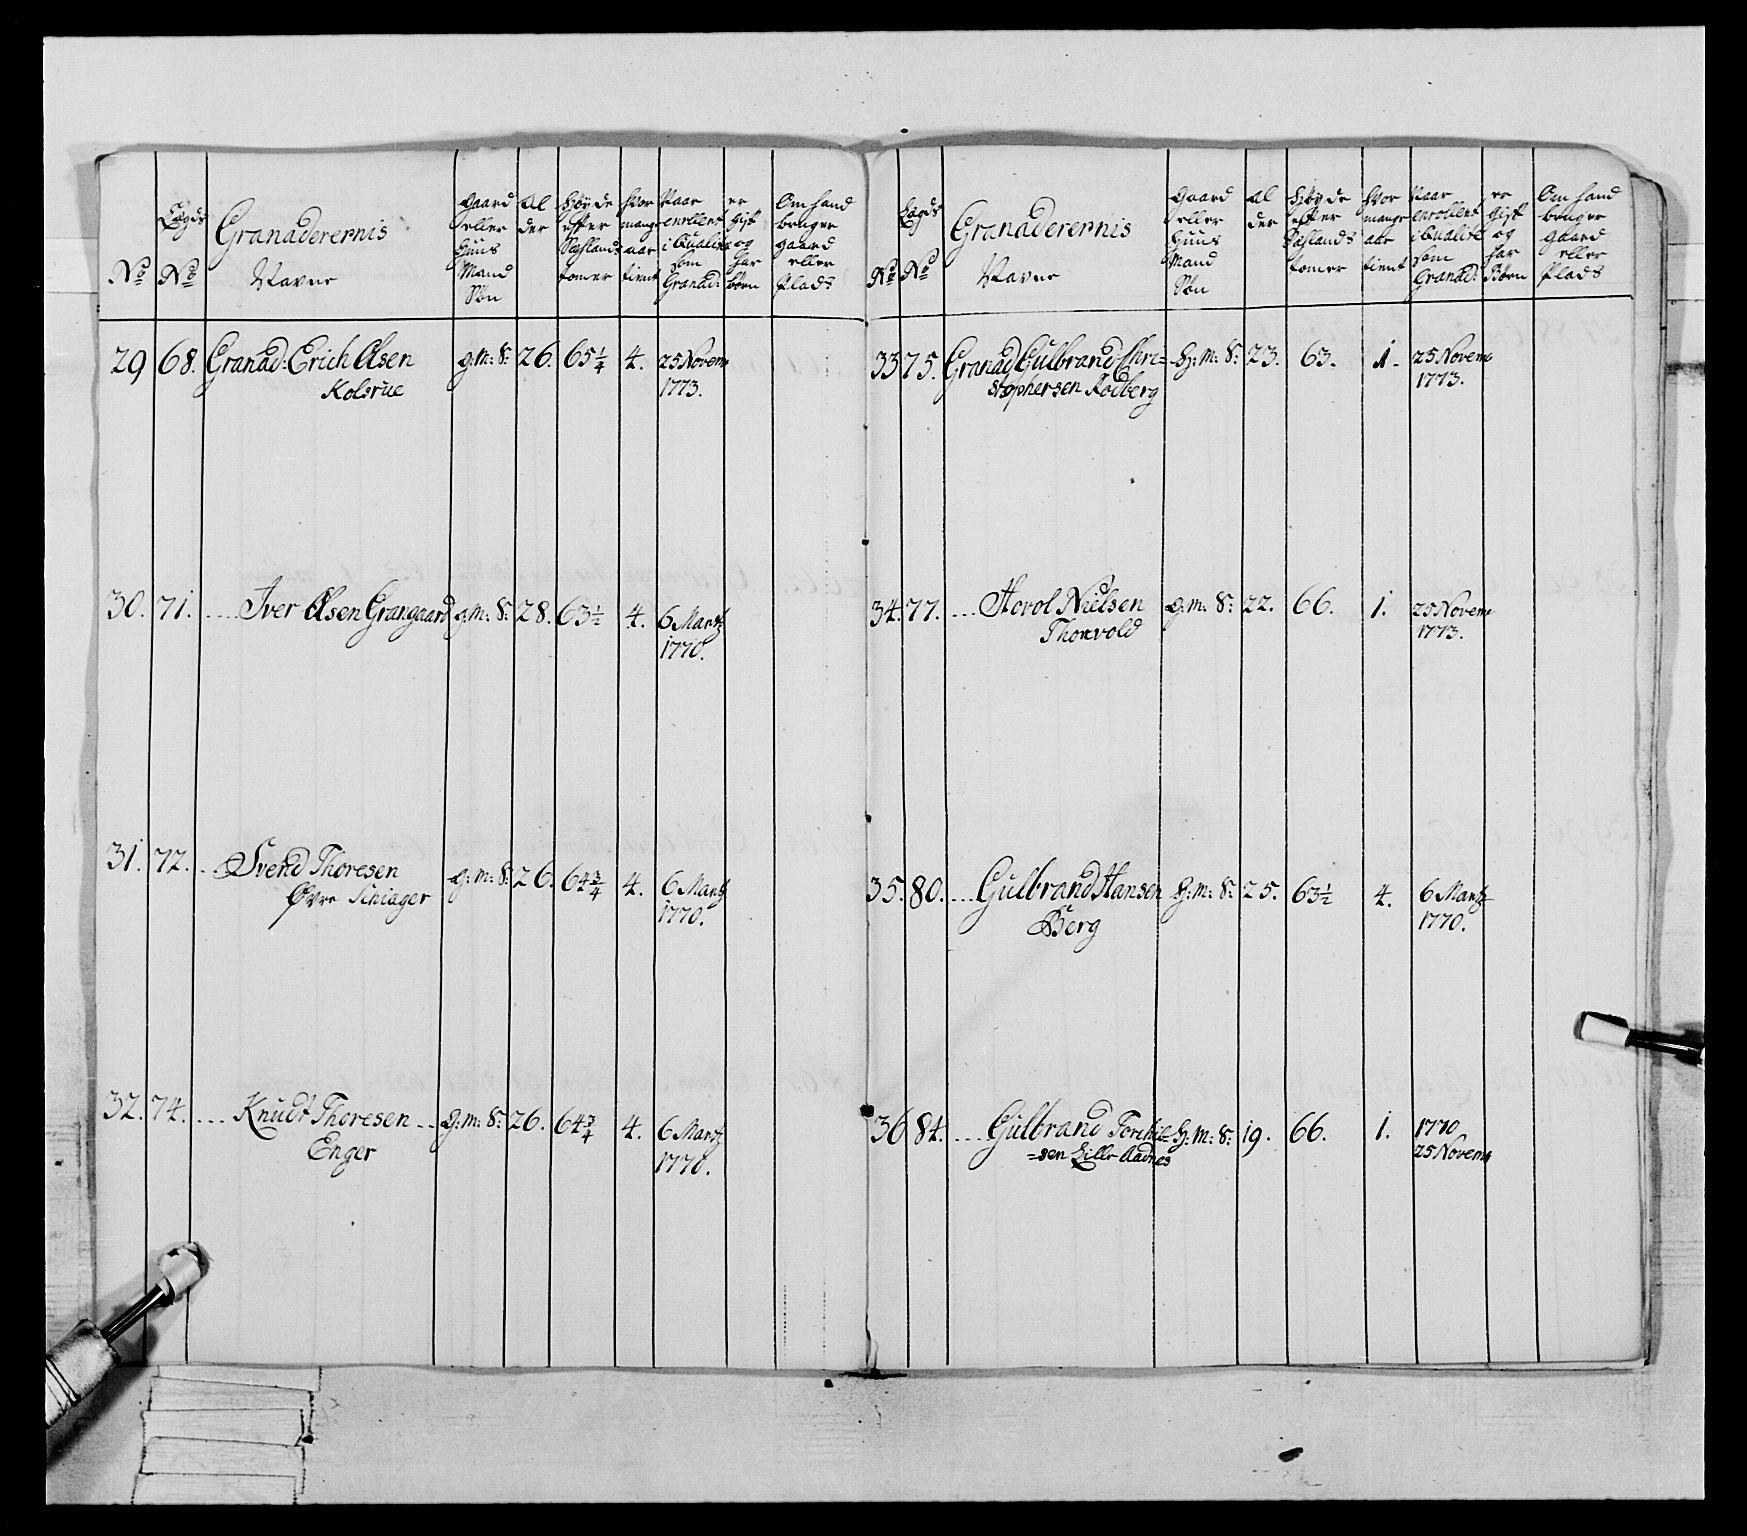 No
Lægds No
Granaderernis Navne
Gaard eller Huus Mand Søn
Al der
Høyde efter Siæhlands tomer
Hvor mange aar tient
Naar enrollert i Qualite som Granad:
er Gift og har Børn
Om hand bruger gaard eller Plads
29 68. Granad: Erich Olsen g: M: S: 26. 65 1/4 4. 25 Novem
Kolsrue 1773.
30. 71. .... Iver Olsen Grangaard g: M: S: 28. 63 1/2 4. 6 Martz
1770.
31. 72. .. Svend Thoresen g: m: S: 26. 64 3/4 4. 6 Martz
Øvre Schiager 1770.
32. 74. .... Knudt Thoresen .. g: m: S: 26. 64 3/4 4. 6 Martz
Enger 1770.
No
Lægds No
Granaderernis Navne
Gaard eller Huus Mand Søn
Al der
Høyde efter Siæhlands tomer
Hvor mange aar tient
Naar enrollert i Qualite som Granad:
er Gift og har Børn
Om hand bruger gaard eller Plads
33 75. Granad Gulbrand Chri= H: m: S: 23. 63. 1. 25 Novem
stophersen Rodberg 1773.
34. 77. .... Harol Nielsen g: m: S: 22. 66. 1. 25 Novem
Thorvold 1773.
35. 80. .... Gulbrand Hansen H: m: S: 25. 63 1/2 4. 6 Martz
Berg 1770.
36 84. .... Gulbrand Torchil= H: m: S: 19. 66. 1. 1770
=sen Lille Aadnes 25 Novem